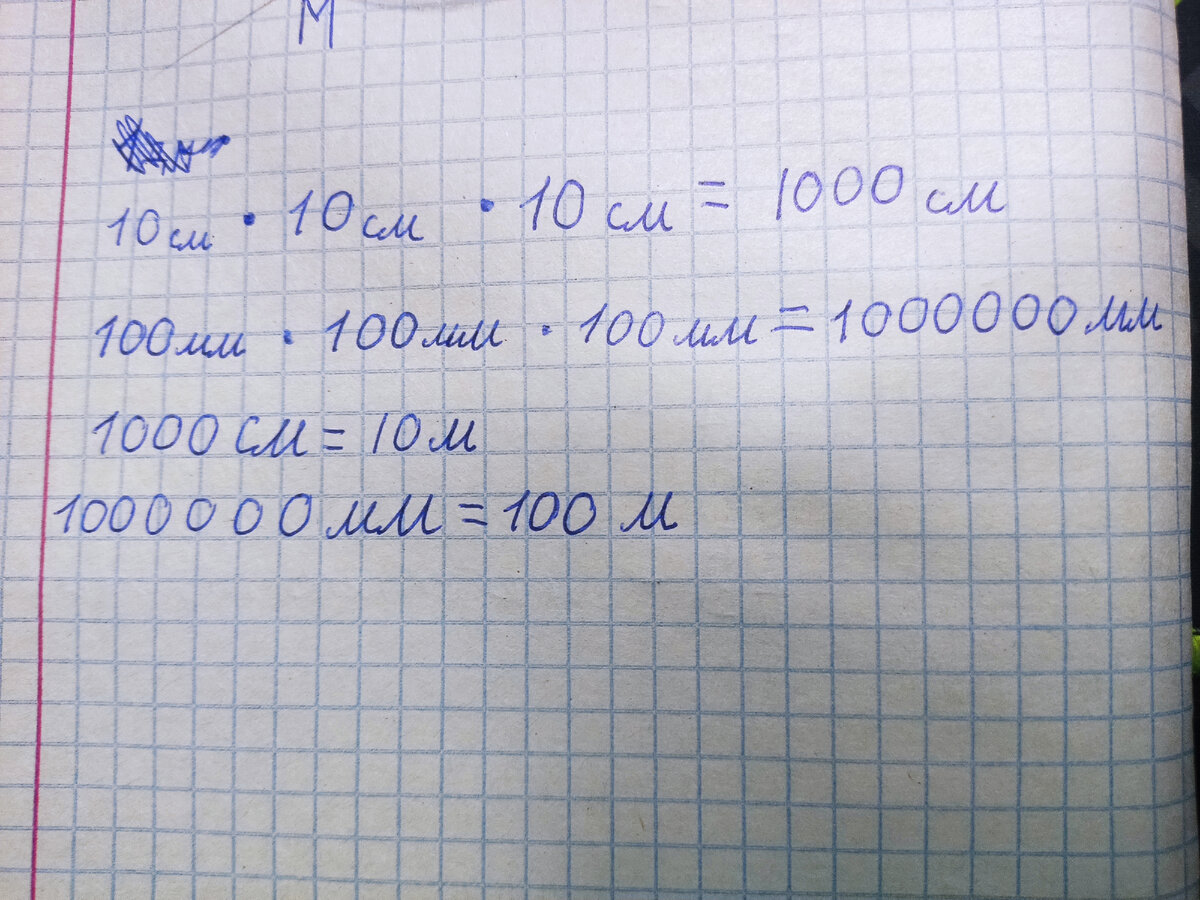 М
10см · 10см · 10см = 1000см
100мм · 100мм · 100мм = 1000000мм
1000см = 10м
1000000мм = 100 м